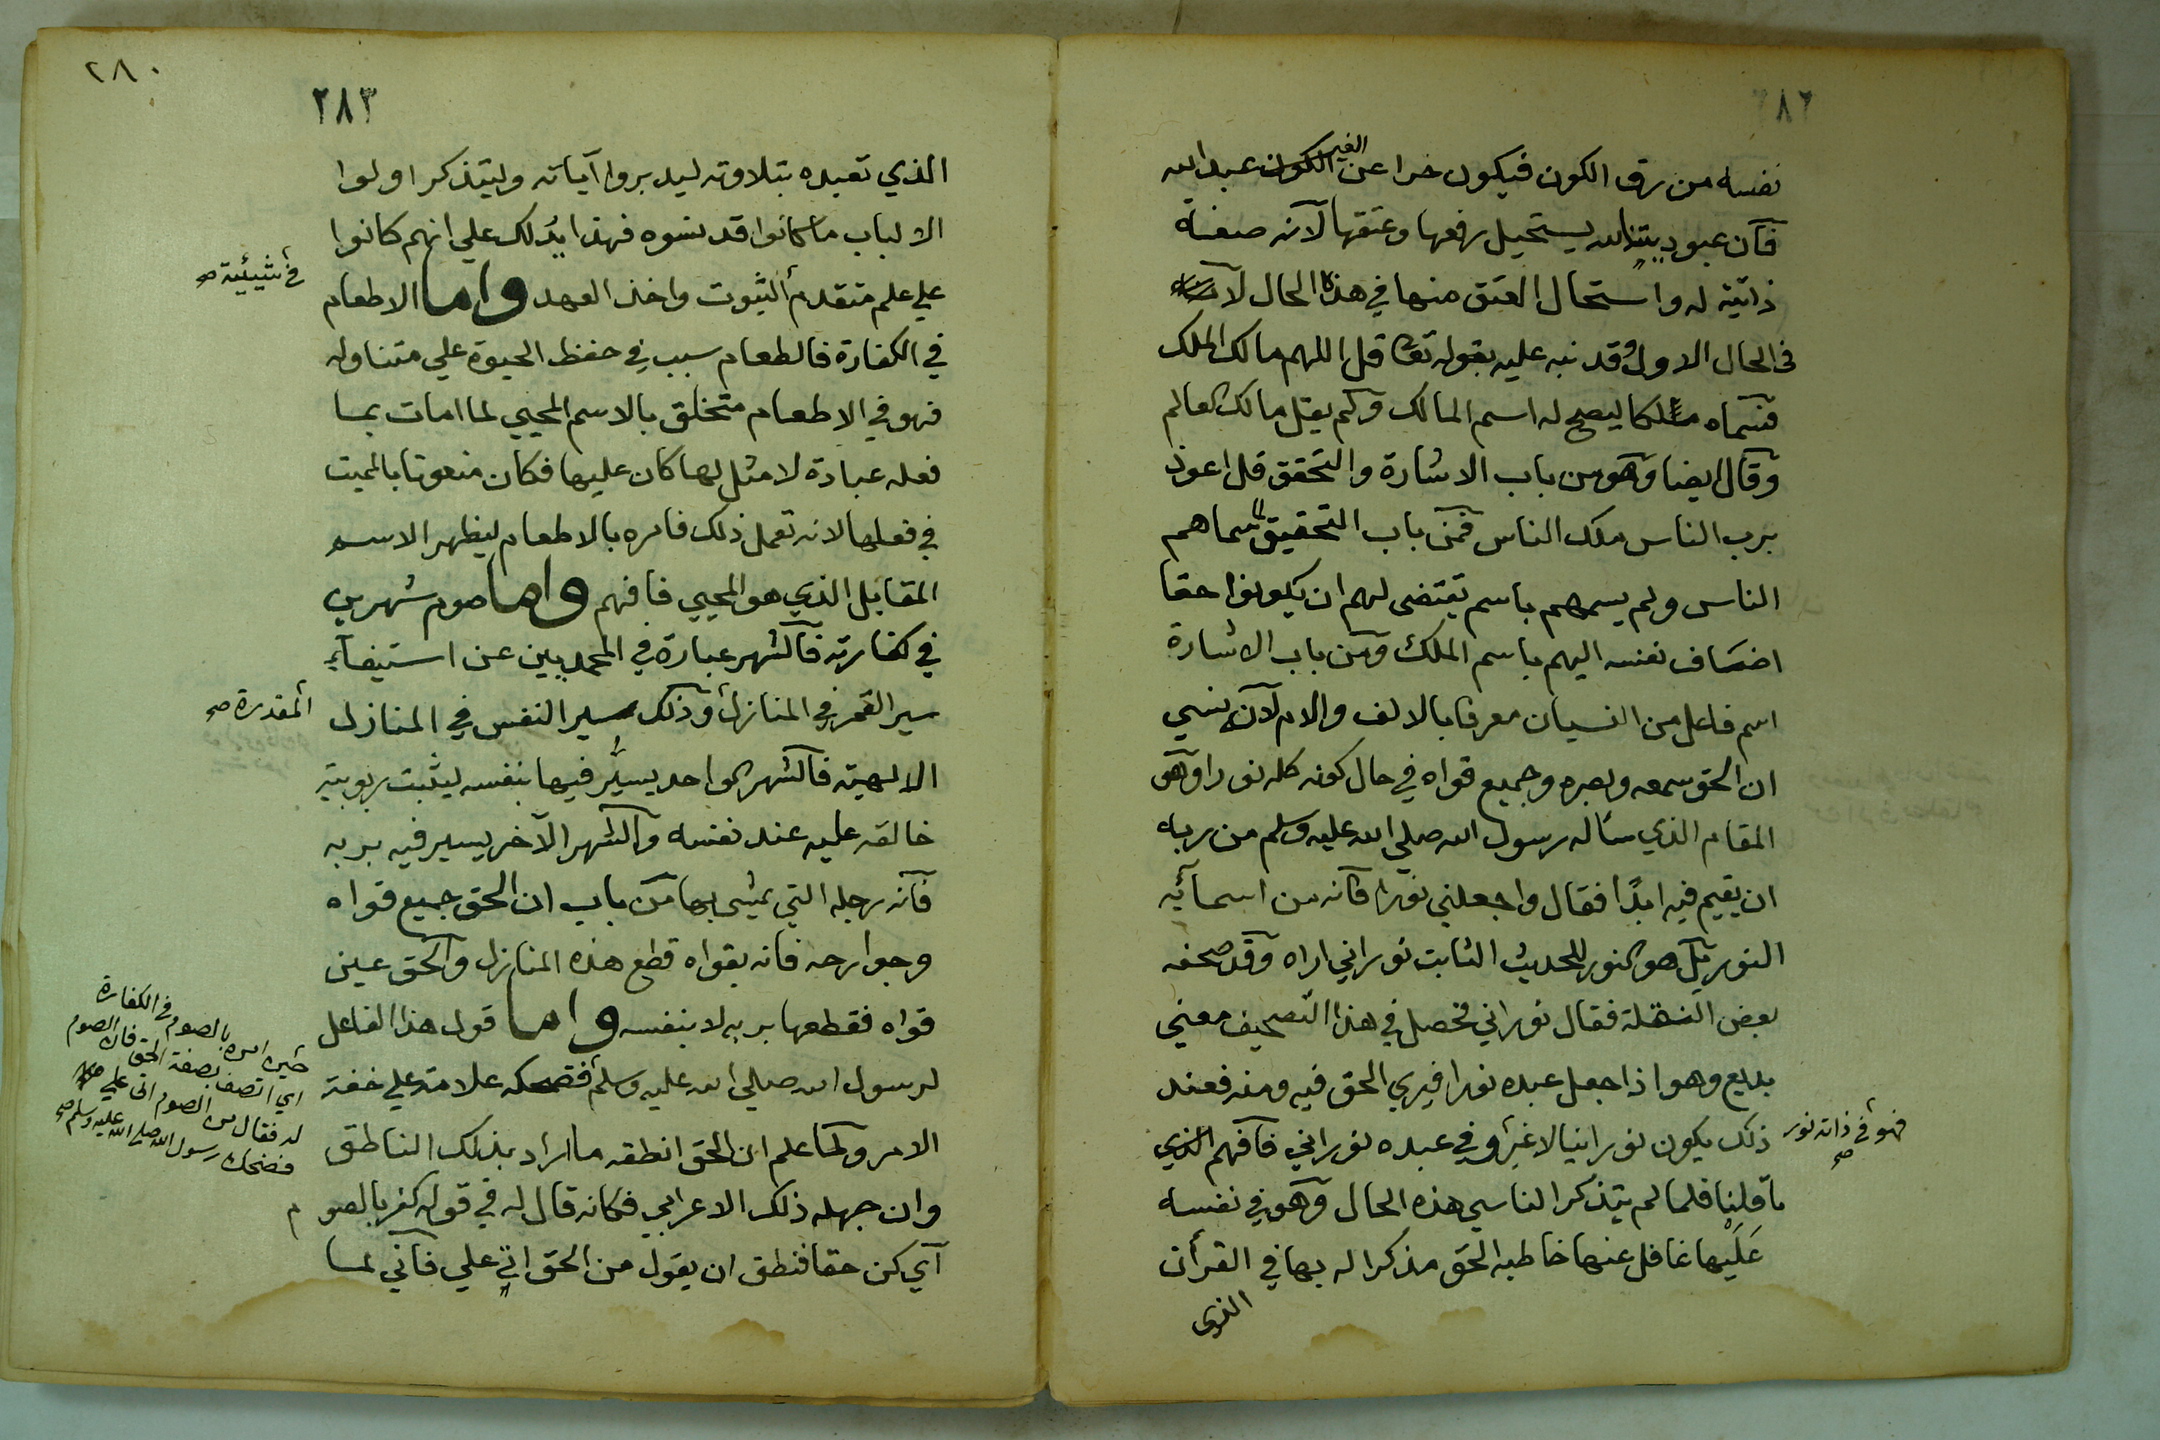 ٢٨٢
نفسه من رق الكون فيكون حرا عن الغير الكون عبد الله
فان عبوديتنا لله يستحيل رفعها وعتقها لانه صفة
ذاتية له واستحال العتق منها في هذه الحال لا
في الحال الاول وقد نبه عليه بقوله تعا قل اللهم مالك الملك
فسماه ملكا ليصح له اسم المالك ولم يقل مالك العالم
وقال ايضا وهو من باب الاشارة والتحقق قل اعوذ
برب الناس ملك الناس فمن باب التحقيق سماهم
الناس ولم يسمهم باسم يقتضى لهم ان يكونوا حقا
اضاف نفسه اليهم باسم الملك ومن باب الاشارة
اسم فاعل من النسيان معرفا بالالف والام لانه نسي
ان الحق سمعه وبصره وجميع قواه في حال كونه كله نورا وهو
المقام الذي ساله رسول الله صلي الله عليه وسلم من ربه
ان يقيم فيه ابدًا فقال واجعلني نورا فانه من اسمائه
النور بل هو النور للحديث الثابت نور اني اراه وقد صحفه
بعض النقلة فقال نوراني فحصل في هذا التصحيف معني
بديع وهو اذا جعل عبده نورا فيري الحق فيه ومنه فعند
ذلك يكون نورانيا لا غير وفي عبده نوراني فافهم الذي
فهو في ذاته نور صح
ما قلنا فلما لم يتذكر الناسي هذه الحال وهو في نفسه
عَلَيْها غافل عنها خاطبه الحق مذكرا له بها في القرأن
الذى
٢٨٠
٢٨٣
الذي تعبده بتلاوته ليدبروا آياته وليتذكر اولوا
الالباب ما كانوا قد نسوه فهذا يدلك علي انهم كانوا
علي علم متقدم الثبوت واخذ العهد واما الاطعام
في شيئية صح
في الكفارة فالطعام سبب في حفظ الحيوة علي متناوله
فهو في الاطعام متخلق بالاسم المحيي لما امات بما
فعله عبادة لا مثل لها كان عليها فكان منعوتا بالمميت
في فعلها لانه تعمل ذلك فامره بالاطعام ليظهر الاسم
المقابل الذي هو المحيي فافهم واما صوم شهرين
في كفارته فالشهر عبارة في المحمديين عن استيفآء
سير القمر في المنازل وذلك سير النفس في المنازل
المقدرة صح
الالهية فالشهر الواحد يسير فيها بنفسه ليثبت ربوبية
خالقه عليه عند نفسه والشهر الآخر يسير فيه بربه
فانه رجله التي يمشي بها من باب ان الحق جميع قواه
وجوارحه فانه بقواه قطع هذه المنازل والحق عين
قواه فقطعها بربه لا بنفسه واما قول هذا الفاعل
لرسول الله صلي الله عليه وسلم فضحكه علامة علي خفة
حين امره بالصوم في الكفارة
اي اتصف بصفة الحق فان الصوم
له فقال من الصوم اتى علي
فضحك رسول الله صلي الله عليه وسلم صح
الامر ولما علم ان الحق انطقه ما اراد بذلك الناطق
وان جهله ذلك الاعرابي فكانه قال له في قوله كفر بالصوم
اي كن حقا فنطق ان يقول من الحق اتي علي فاني لما